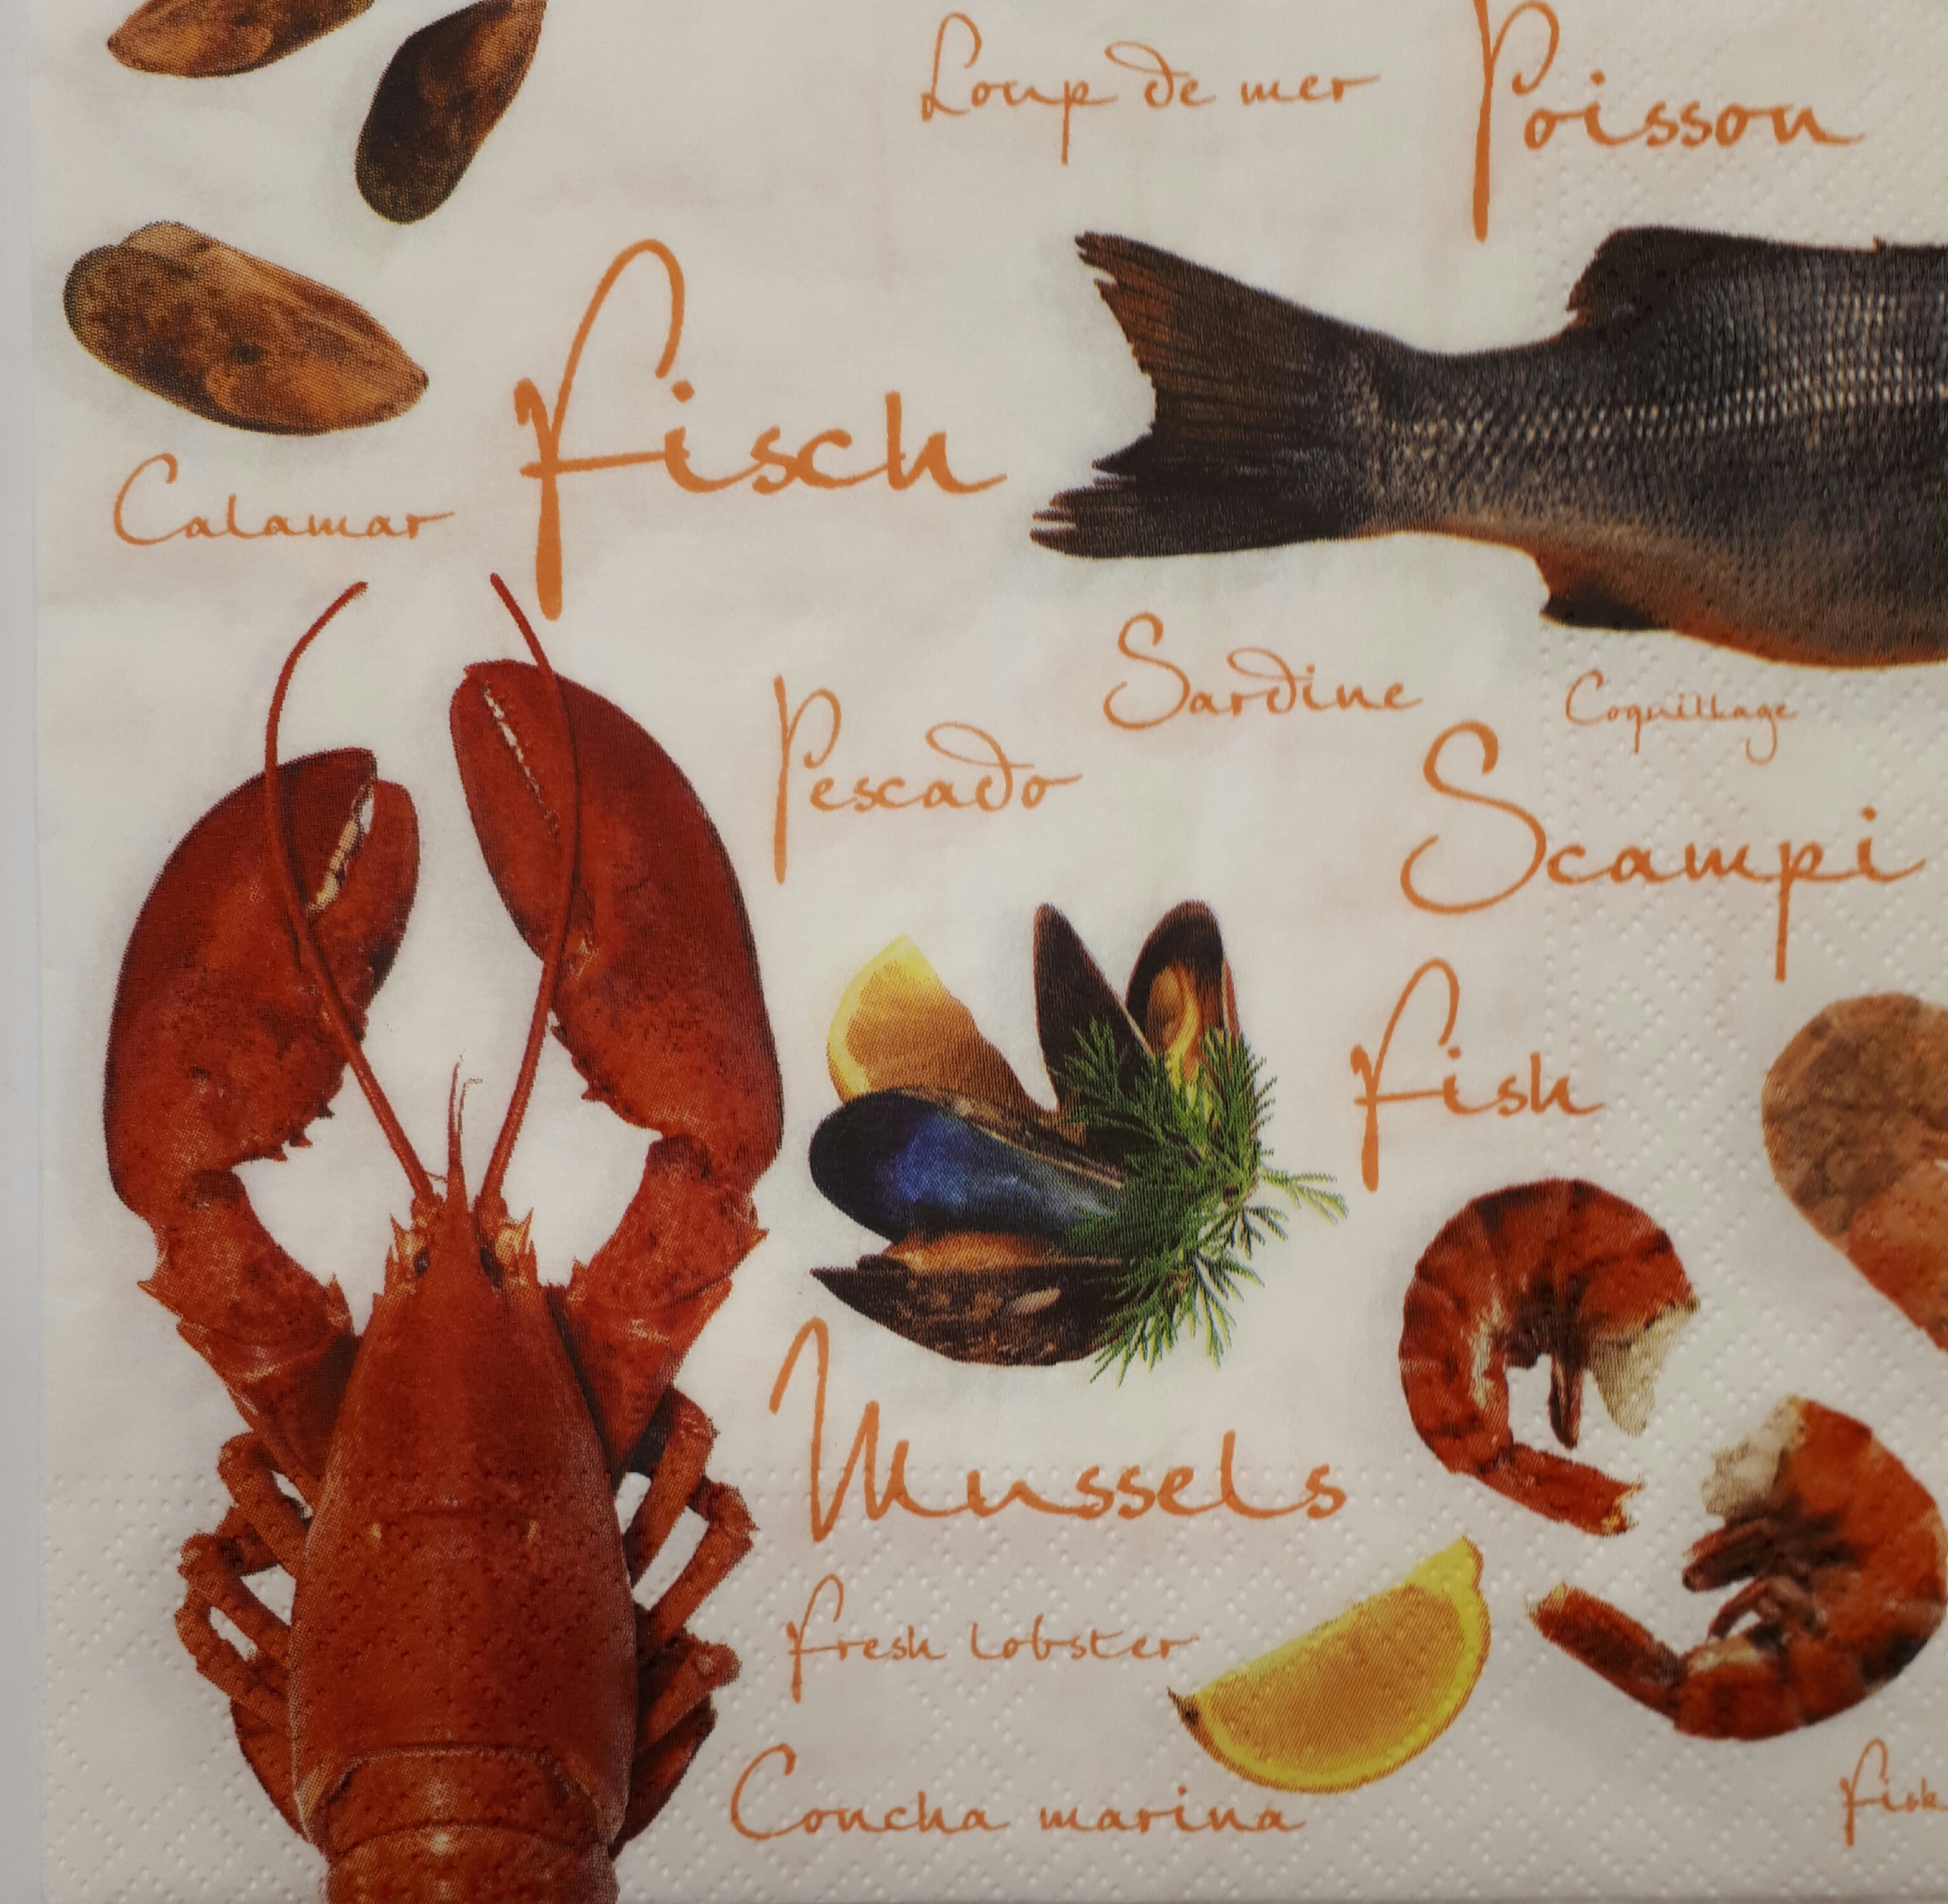 Loup de mer
Poisson
Fisch
Calamar
Sardine
Coquillage
Pescado
Scampi
Fish
Mussels
Fresh lobster
Concha marina